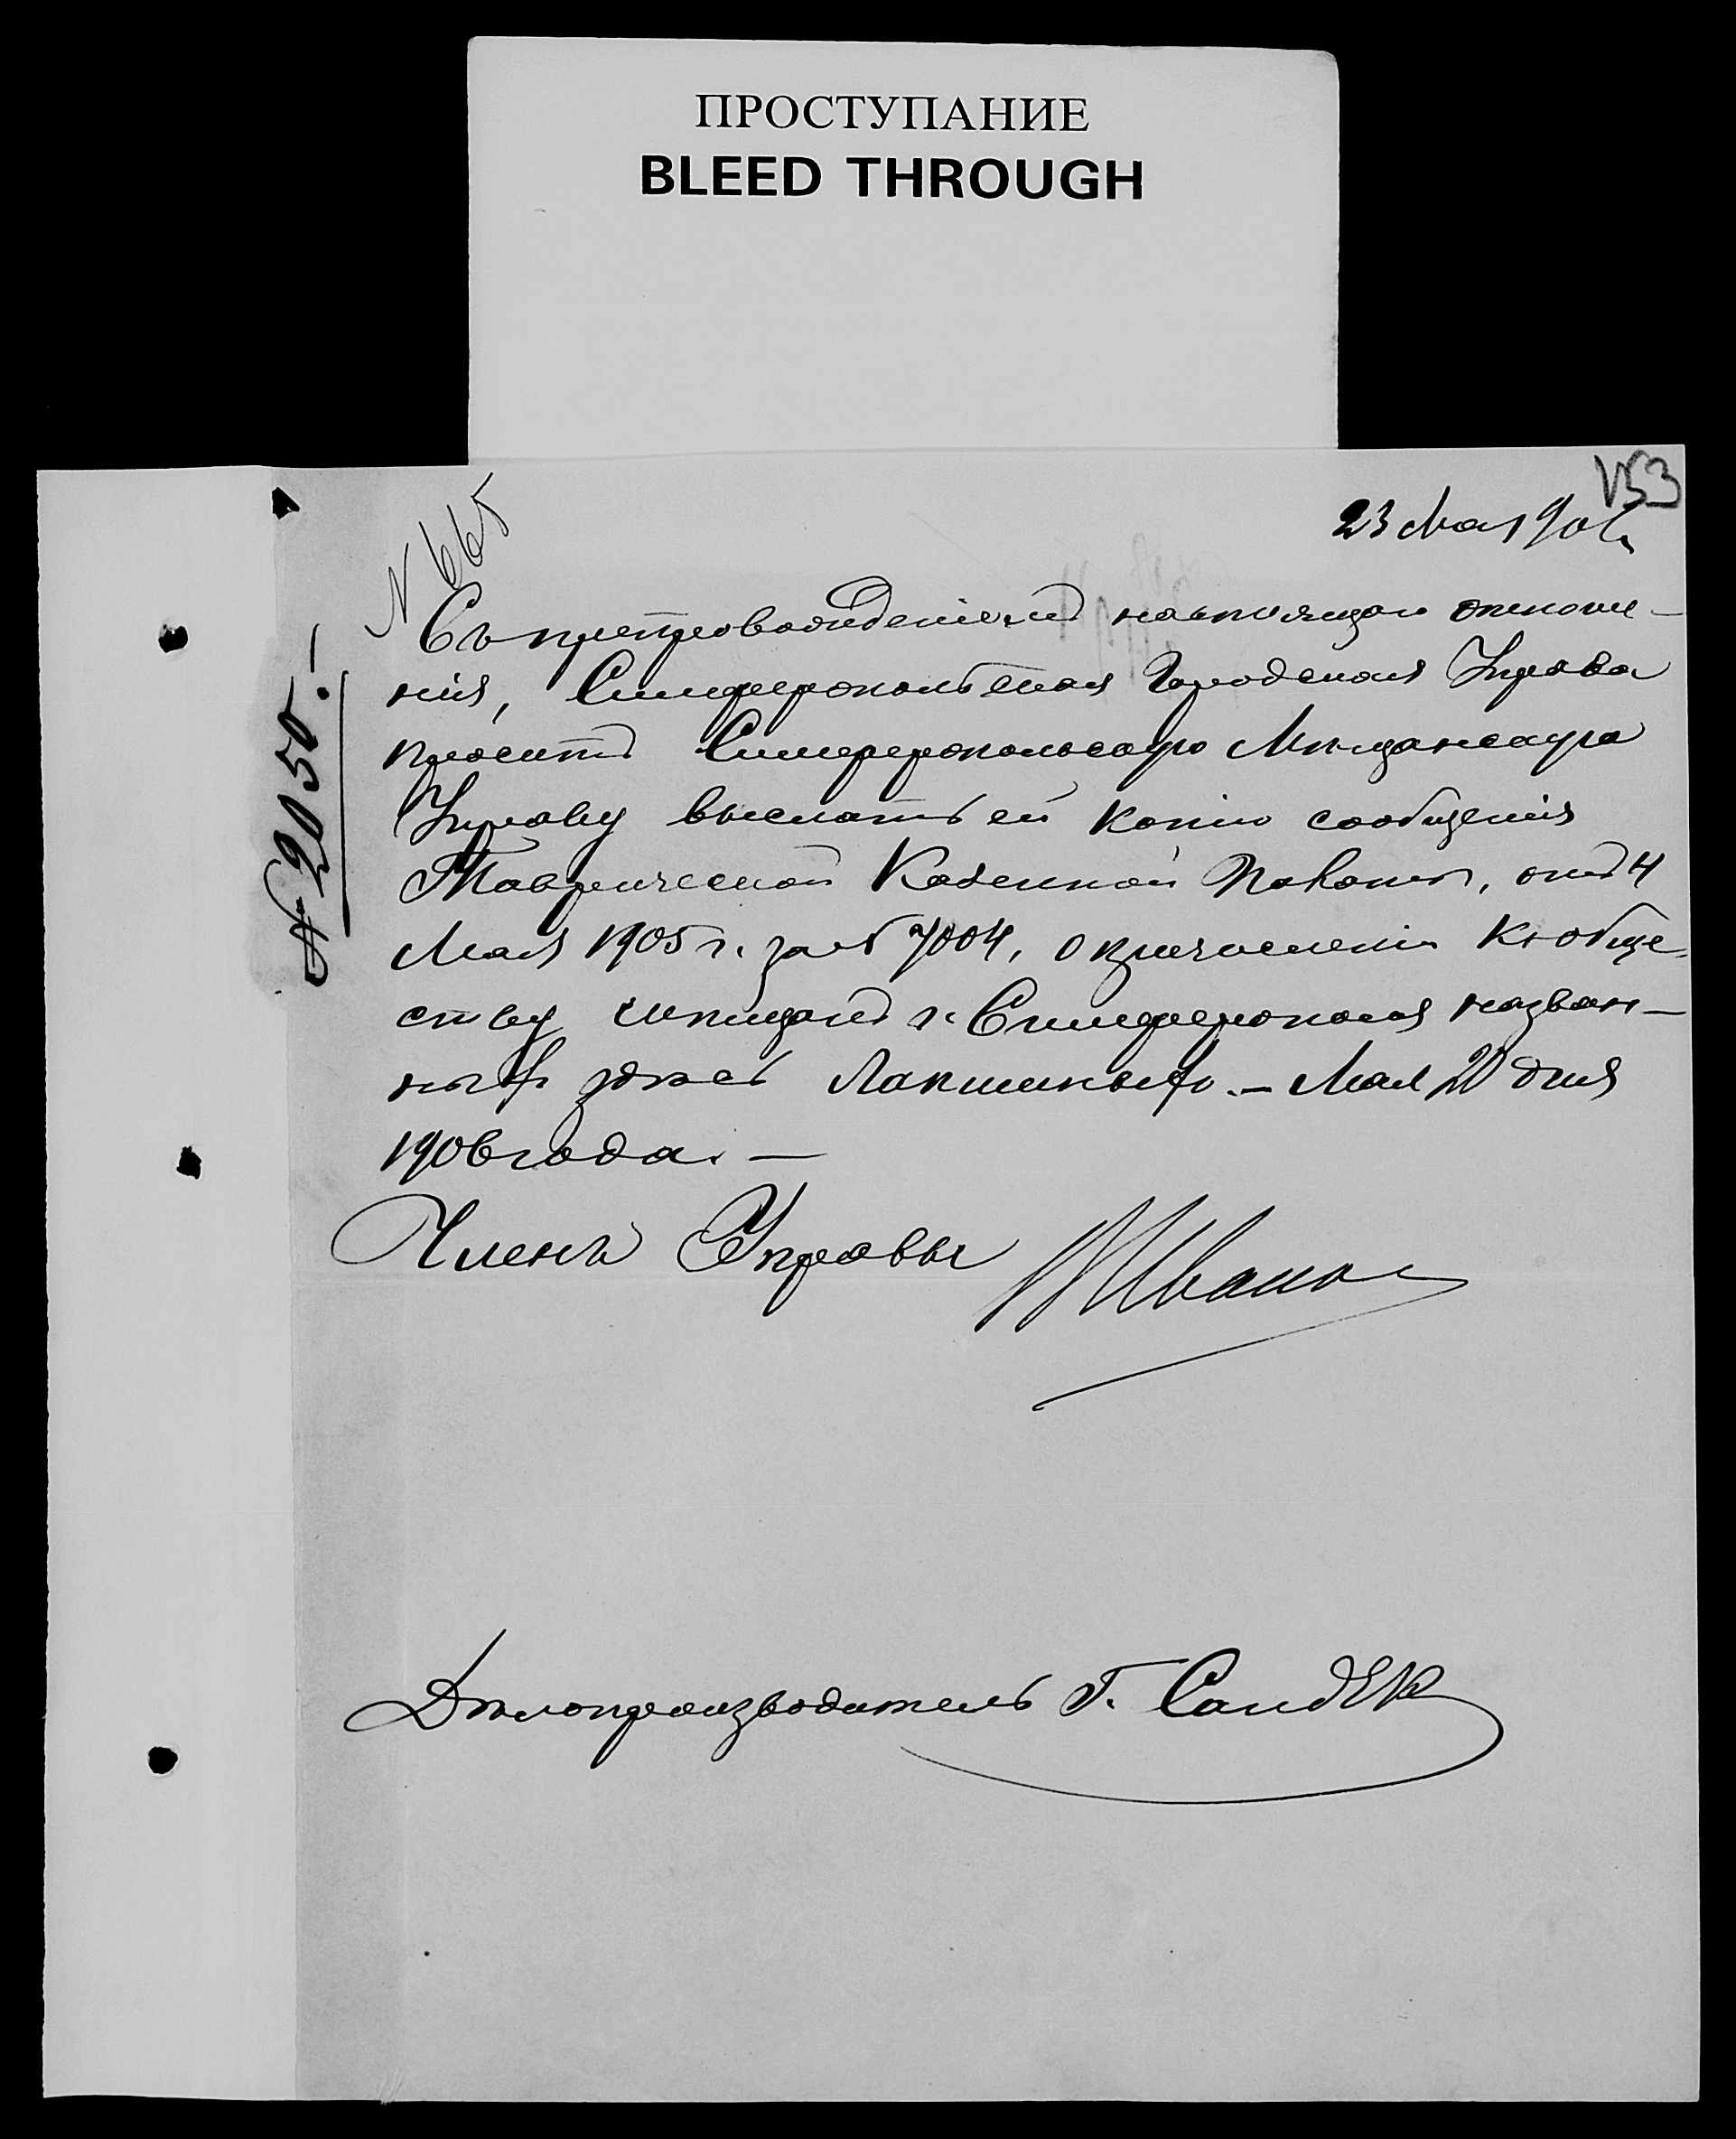 ПРОСТУПАНИЕ
BLEED THROUGH
23 Мая 190
N 665
№ 2050.—
Съ препровожденіемъ настоящаго отноше-
нія, Симферопольская Городская Управа
проситъ Симферопольскую Мѣщанскую
Управу выслать ей копію сообщенія
Таврической Казенной Палаты, отъ 4
Мая 1905 г. за № 7004, о причисленіи къ обще-
ству мѣщанъ г. Симферополя назван-
ныхъ здѣсь Лапшиныхъ. — Мая 20 дня
1906 года. —
Членъ Управы Иванов
Дѣлопроизводитель Г.